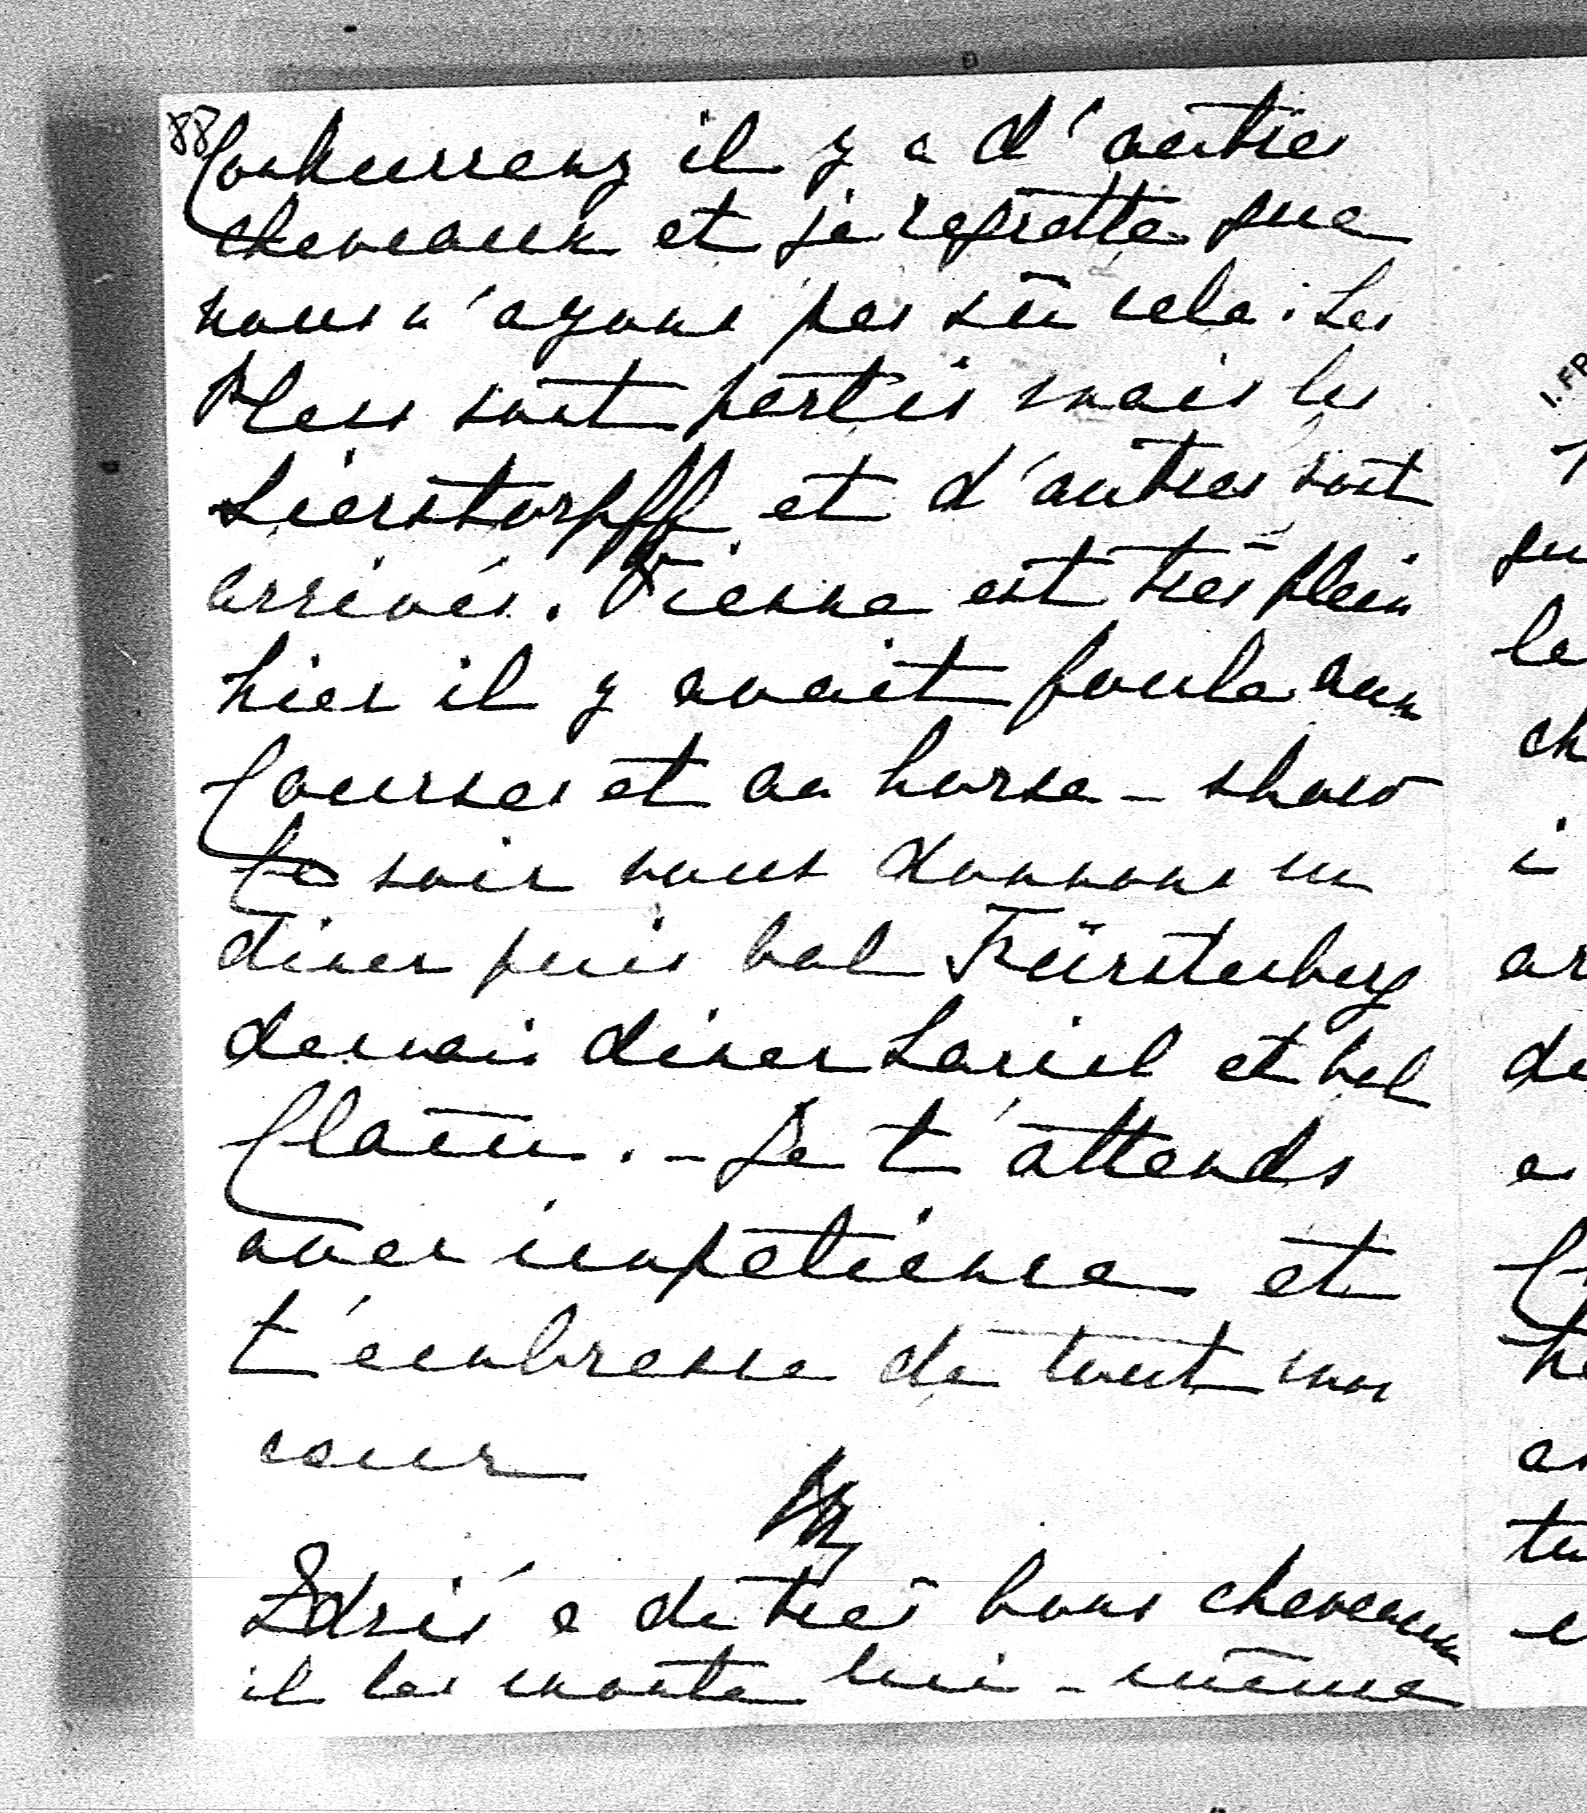 88
Conkurrenz il y a d'autres
chevaux et je regrette que
nous n'ayons pas su cela. Les
Pless sont partis mais les
Sierstorpff et d'autres sont
arrivés. Vienne est très plein
hier il y avait foule aux
Courses et au horse-show
Ce soir nous donnons un
diner puis bal Fürstenberg
demain diner Larisch et bal
Clam. - Je t'attends
avec impatience et
t'embrasse de tout mon
coeur

Zdris a de très bons chevaux
il les monte lui-même